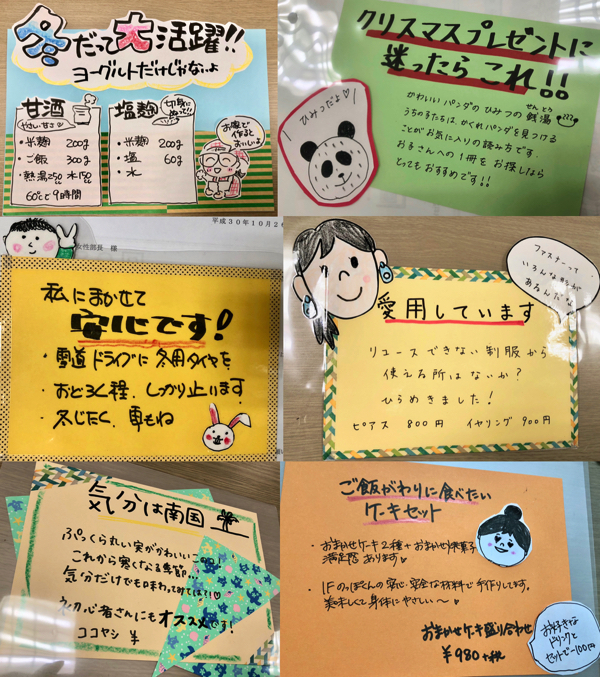 冬だって大活躍!!
ヨーグルトだけじゃないよ
甘酒
やさしい甘さ
・米麹 200g
・ご飯 300g
・熱湯250 水150cc
60℃で9時間
塩麹
切身にぬって!!
・米麹 200g
・塩 60g
・水
お家で
作ると
おいしいよ
クリスマスプレゼントに
迷ったらこれ!!
ひみつだよ♡
かわいいパンダのひみつの銭湯
せんとう
うちの子たちは、かくれパンダを見つける
ことがお気に入りの読み方です。
お子さんへの1冊をお探しなら
とってもおすすめです!!
平成30年10月2
女性部長 様
私にまかせて
安心です!
・雪道ドライブに冬用タイヤを
・おどろく程、しっかり止います
・冬じたく、車もね
ファスナーって
いろんな形が
あるんだな
愛用しています
リユースできない制服から
使える所はないか?
ひらめきました!
ピアス 800円 イヤリング 900円
気分は南国
ぷっくら丸い実がかわいい
これから寒くなる季節…
気分だけでも味わってみては?!♡
初心者さんにもオススメです!
ココヤシ
ご飯がわりに食べたい
ケーキセット
・おまかせケーキ2種+おまかせ焼菓子
満足感あります♥
・1Fのっぽくんの安心・安全な材料で手作りしてます。
美味しくて身体にやさしい〜♥
おまかせケーキ盛り合わせ
¥980+税
お好きな
ドリンクと
セットで-100円